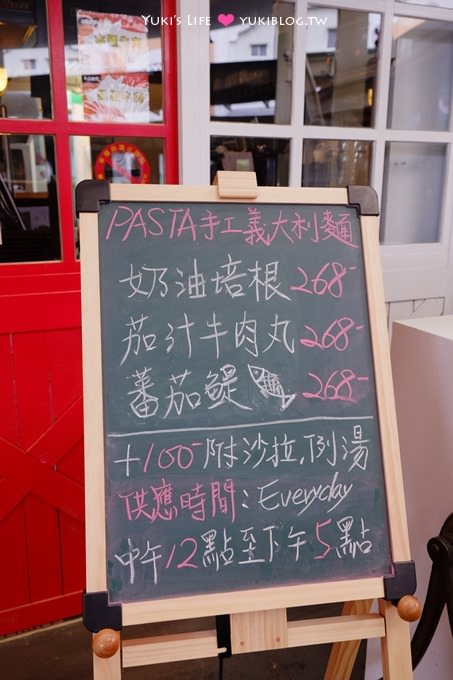 YUKI's LIFE YUKIBLOG.TW
PASTA手工義大利麵
奶油培根268-
茄汁牛肉丸268-
蕃茄鯷268-
+100-附沙拉,例湯
供應時間:Everyday
中午12點至下午5點